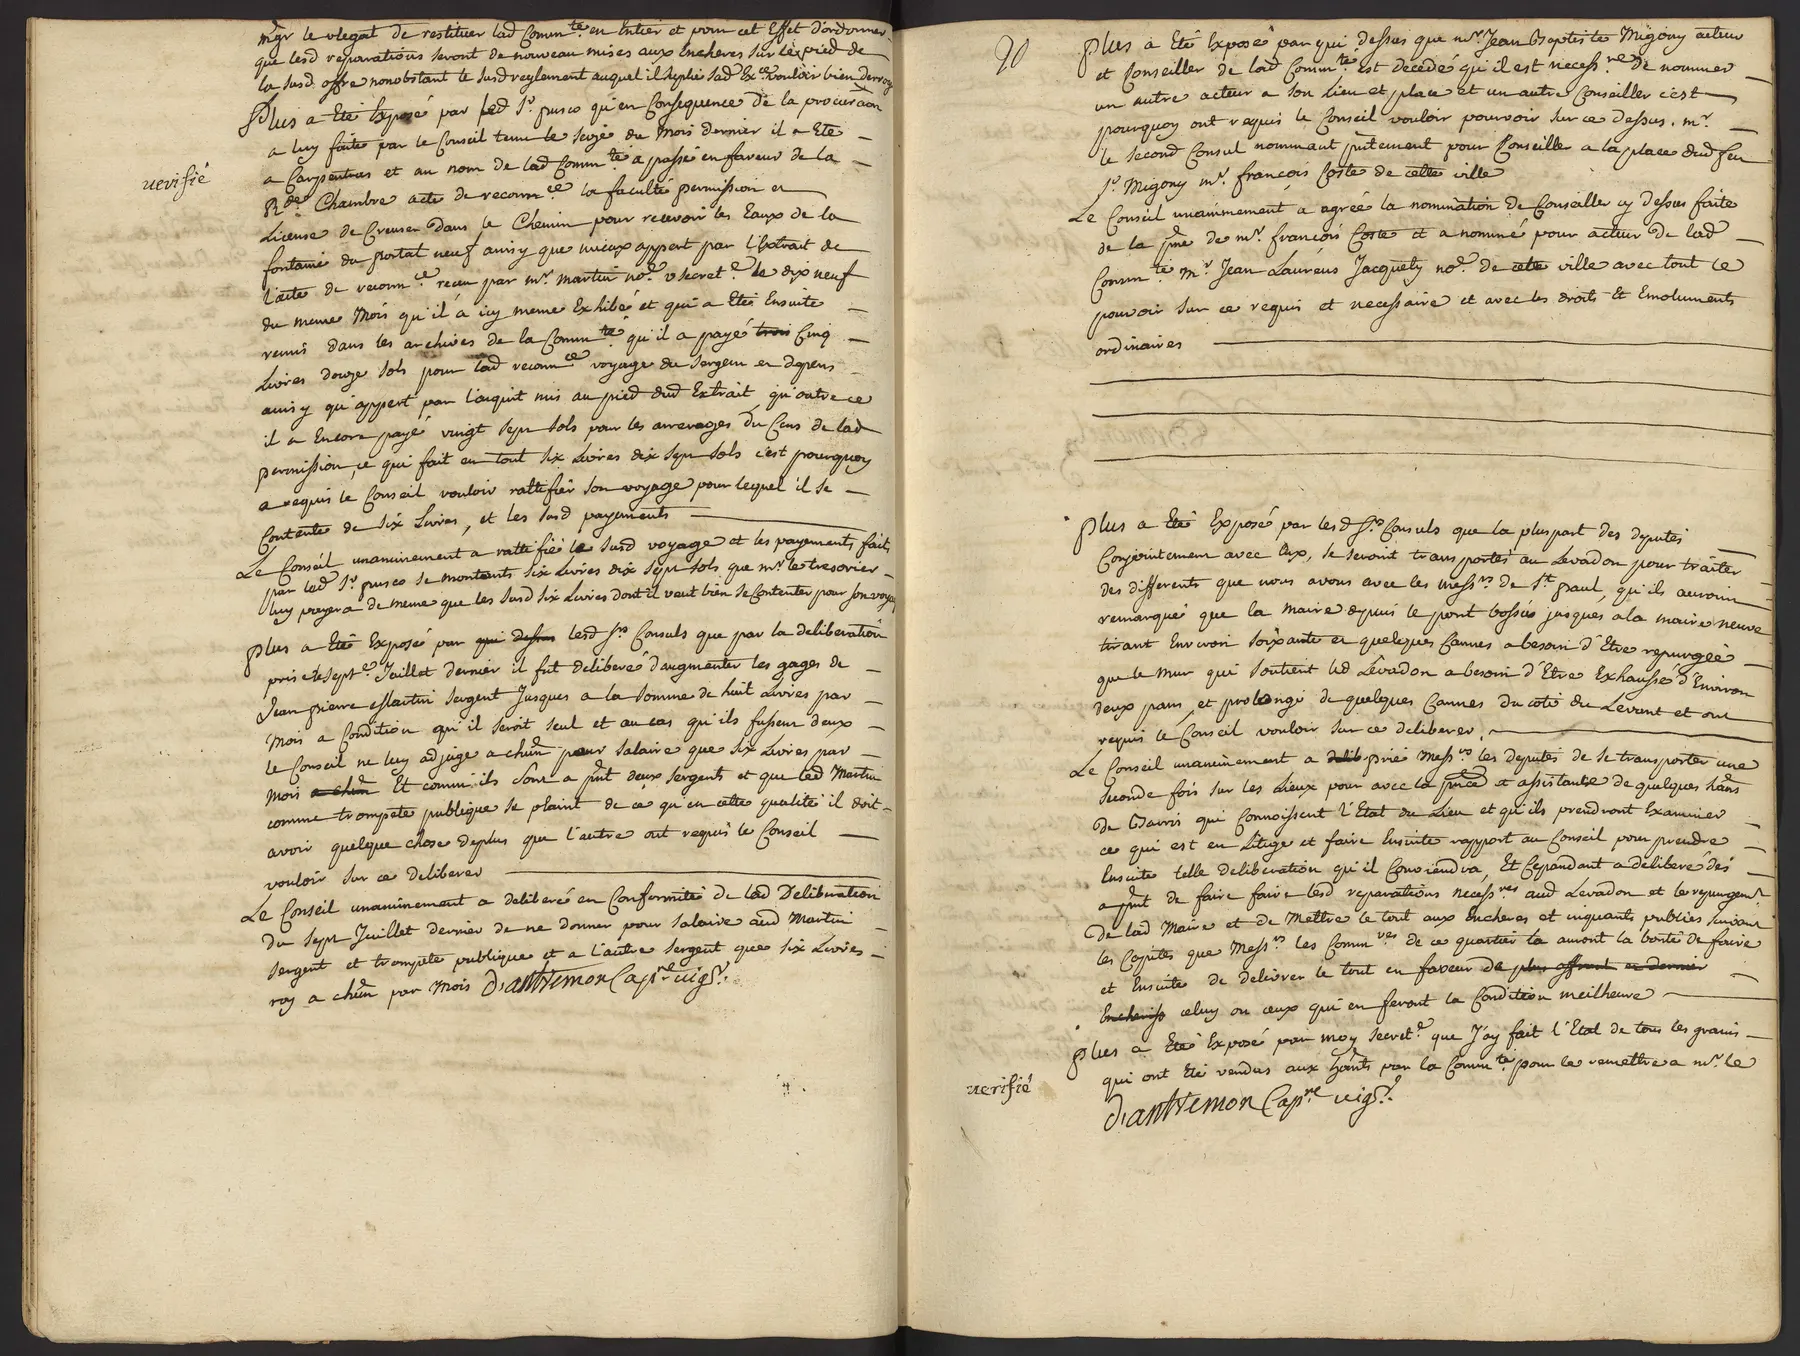 mgr le vlegat de restituer lad Comm.té en Entier et pour cet Effet d'ordonner
que lesd reparations seront de nouveau mises aux Encheres sur le pied de
la susd offre nonobstant le susd reglement auquel il suplie sad Ex.ce vouloir bien deroger
Plus a Eté Exposé par led Sr. fusco qu'en Consequence de la procuraon
a luy faite par le Conseil tenu le seize du Mois dernier il a Eté
a Carpentras et au nom de lad Comm.té a passé en faveur de la
verifié
R.de Chambre acte de reconn.ce la faculté permission et
License de Creuser dans le Chemin pour recevoir les Eaux de la
fontaine du portail neuf ainsy que mieux appert par l'Extrait de
l'acte de reconn.ce receu par mr. martin no.re & secret.re le dix neuf
du meme Mois qu'il a icy meme Exhibé et qui a Eté Ensuite
remis dans les archives de la Comm.té qu'il a payé trois Cinq
Livres douze sols pour lad reconn.ce voyage du sergent et depens
ainsy qu'appert par l'acquit mis au pied dud Extrait, qu'outre ce
il a Encore payé vingt sept sols pour les arrerages du Cens de lad
permission, ce qui fait en tout six Livres dix sept sols c'est pourquoy
a requis le Conseil vouloir rattifier son voyage pour lequel il se
Contente de six Livres, et les susd payements
Le Conseil unanimement a rattifié le susd voyage et les payements fait
par lad Sr. fusco se montants six Livres dix sept sols que mr. le tresorier
luy payera de meme que les susd six Livres dont il veut bien se Contenter pour son voyage
Plus a Eté Exposé par qui dessus lesd Srs Consuls que par la deliberation
prise le sept.e Juillet dernier il fut deliberé d'augmenter les gages de
Jean pierre Martin sergent Jusques a la somme de huit Livres par
Mois a Condition qu'il seroit seul et au cas qu'ils fussent deux
le Conseil ne luy adjuge a chun pour salaire que six Livres par
Mois a chun Et comm'ils sont a pnt deux sergents et que led Martin
comme trompete publique se plaint de ce qu'en cette qualité il doit
avoir quelque chose deplus que l'autre ont requis le Conseil
vouloir sur ce deliberer
Le Conseil unanimement a deliberé en Conformité de lad Deliberation
du sept Juillet dernier de ne donner pour salaire aud Martin
sergent et trompete publique et a l'autre sergent que six Livres
roy a chun par Mois D'anthemon Cap.re vig.r
90
Plus a Eté Exposé par qui dessus que mr. Jean Baptiste Migony acteur
et Conseiller de lad Comm.té Est decedé qu'il est necess.re de nommer
un autre acteur a son Lieu et place et un autre Conseiller c'est
pourquoy ont requis le Conseil vouloir pourvoir sur ce dessus. mr.
le second Consul nommant justement pour Conseiller a la place dud feu
Sr. Migony mr. françois Coste de cette ville
Le Conseil unanimement a agréé la nomination de Conseiller cy dessus faite
de la pne de mr. françois Coste et a nommé pour acteur de lad
Comm.té Mr Jean Laurens Jacquety no.re de cette ville avec tout le
pouvoir sur ce requis et necessaire et avec les droits Et Emoluments
ordinaires
Plus a Eté Exposé par lesd Srs Consuls que la pluspart des deputés
Conjointement avec Eux, se seroint transportés au Levadon pour traiter
des differents que nous avons avec les mess.rs de St paul, qu'ils auroint
remarqué que la maire depuis le pont bossus jusques a la maire neuve
tirant Environ soixante et quelques Cannes a besoin d'Etre repurgée
que le Mur qui soutient led Levadon a besoin d'Etre Exhaussé d'Environ
deux pans, et prolongé de quelques Cannes du coté du Levant et ont
requis le Conseil vouloir sur ce deliberer.
Le Conseil unanimement a delib prié Mess.rs les deputés de se transporter une
seconde fois sur les Lieux pour avec la pnce et assistance de quelques hans
de Barris qui Connoissent l'Etat du Lieu et qu'ils prendront Examiner
ce qui est en Litige et faire Ensuite rapport au Conseil pour prendre
Ensuite telle deliberation qu'il Conviendra, Et Cependant a deliberé des
a pnt de faire faire lesd reparations necess.res aud Levadon et le repurgem.t
de lad Maire et de Mettre le tout aux Encheres et inquants publics suivant
les Capites que Mess.rs les Comm.res de ce quartier la auront la bonté de faire
et Ensuite de delivrer le tout en faveur de plus offrant et dernier
Encheriss celuy ou ceux qui en feront la Condition meilheure
Plus a Eté Exposé par moy secret.re que J'ay fait l'Etat de tous les grains
verifié
qui ont Eté vendus aux hants par la Comm.té pour le remettre a mr. le
D'anthemon Cap.re vig.r